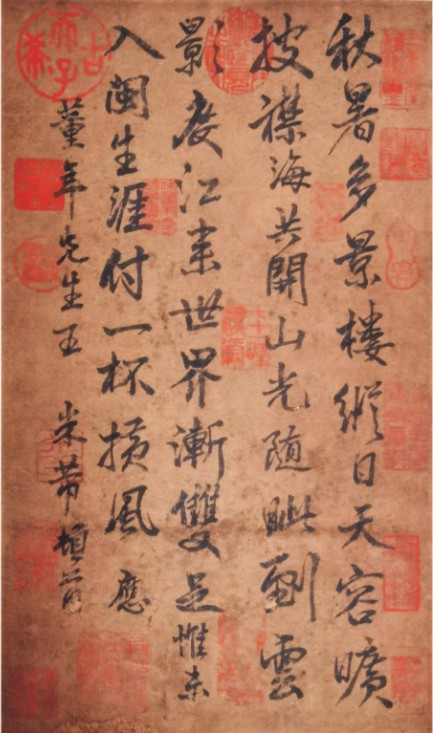 秋暑多景樓縱目天容曠
披襟海共開山光隨眺到雲
影度江来世界漸雙足惟未
入閩生涯付一杯横風應
董年先生王 米芾頓首
古希天子